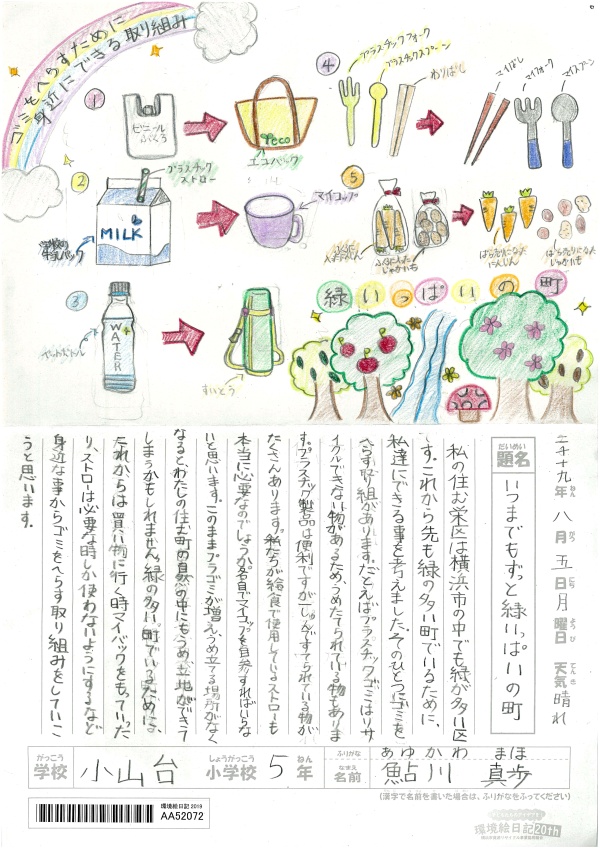 ゴミをへらすために
身近にできる取り組み
1
ビニール
ぶくろ
eco
エコバック
2
プラスチック
ストロー
MILK
学校の
牛乳パック
マイコップ
3
WATER
ペットボトル
すいとう
4
プラスチックフォーク
プラスチックスプーン
わりばし
マイばし
マイフォーク
マイスプーン
5
ふくろに入った
じゃがいも
ばら売りになった
にんじん
ばら売りになった
じゃがいも
緑いっぱいの町
二千十九年 八月五日月曜日 天気 晴れ
ねん がつ にち ようび てんき
だいめい
題名
いつまでもずっと緑いっぱいの町
私の住む栄区は横浜市の中でも緑が多い区
です。これから先も緑の多い町でいるために、
私達にできる事を考えました。そのひとつにゴミを
へらす取り組があります。たとえばプラスチックゴミはリサ
イクルできない物があるため、うめたてられている物もありま
す。プラスチック製品は便利ですが、しぜんにすてられている物が
たくさんあります。私たちが給食で使用しているストローも
本当に必要なのでしょうか。各自でマイコップを自参すればいらな
いと思います。このままプラゴミが増え、うめ立てる場所がなく
なるとわたしの住む町の自然の中にもうめ立地ができて
しまうかもしれません。緑の多い町でいるために、
これからは買い物に行く時マイバックをもっていった
り、ストローは必要な時しか使わないようにするなど
身近な事からゴミをへらす取り組みをしていこ
うと思います。
がっこう しょうがっこう ねん ふりがな あゆ かわ まほ
学校 小山台 小学校 5年 なまえ 名前 鮎川 真歩
(漢字で名前を書いた場合は、ふりがなをふってください)
環境絵日記 2019
AA52072
環境絵日記20th